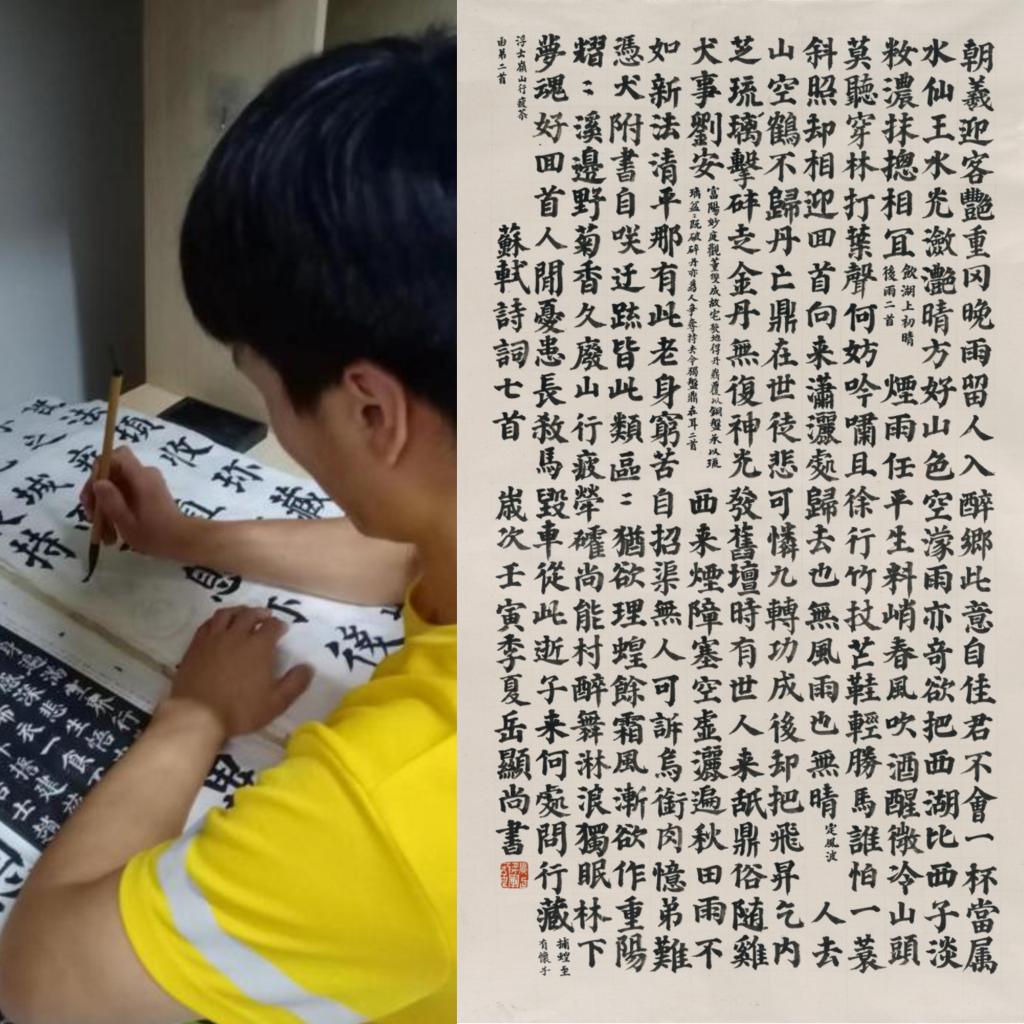 收弥藏
息
持
後
朝羲迎客艷重冈晚雨留人入醉鄉此意自佳君不會一杯當属
水仙王水光瀲灩晴方好山色空濛雨亦奇欲把西湖比西子淡
籹濃抹揔相冝 飲湖上初晴後雨二首 煙雨任平生料峭春風吹酒醒微冷山頭
莫聽穿林打葉聲何妨吟嘯且徐行竹杖芒鞋輕勝馬誰怕一蓑
斜照却相迎回首向来瀟灑處歸去也無風雨也無晴 定風波 人去
山空鶴不歸丹亡鼎在世徒悲可憐九轉功成後却把飛昇乞内
芝琉璃擊碎走金丹無復神光發舊壇時有世人来舐鼎俗随雞
犬事劉安 富陽妙庭觀董雙成故宅發地得丹鼎覆以銅盤承以琉璃盆二既破碎丹亦爲人爭奪持去今獨盤鼎在耳二首 西来煙障塞空虚灑遍秋田雨不
如新法清平那有此老身窮苦自招渠無人可訴烏銜肉憶弟難
憑犬附書自咲迂踈皆此類區二猶欲理蝗餘霜風漸欲作重陽
熠二溪邊野菊香久廢山行疲犖確尚能村醉舞淋浪獨眠林下
夢魂好回首人間憂患長殺馬毀車從此逝子来何處問行藏 捕蝗至
浮士嶺山行疲苶
有懷子
由弟二首
蘇軾詩詞七首 歲次壬寅季夏岳顯尚書